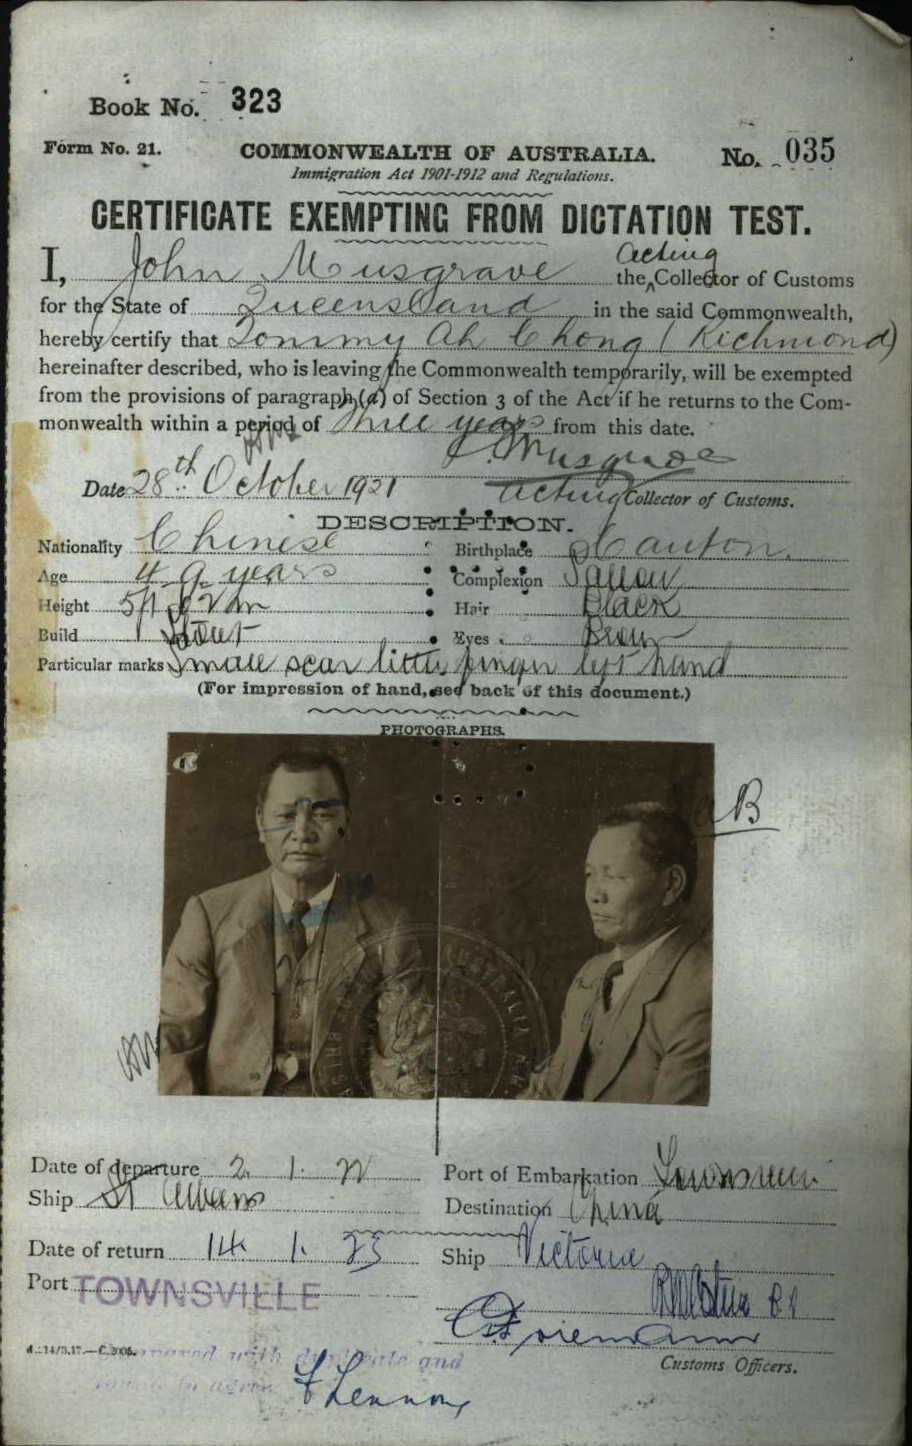 Book No. 323
Form No. 21. COMMONWEALTH OF AUSTRALIA. No. 035
Immigration Act 1901-1912 and Regulations.
CERTIFICATE EXEMPTING FROM DICTATION TEST.
I, John Musgrave the acting Collector of Customs
for the State of Queensland in the said Commonwealth,
hereby certify that Tommy Ah Chong (Richmond)
hereinafter described, who is leaving the Commonwealth temporarily, will be exempted
from the provisions of paragraph (a) of Section 3 of the Act if he returns to the Com-
monwealth within a period of Three years from this date.
J. Musgrave
Date 28th October 1921 acting Collector of Customs.
DESCRIPTION.
Nationality Chinese Birthplace Canton.
Age 49 years Complexion Sallow
Height Hair Black
Build Stout Eyes Brown
Particular marks Small scar little finger left hand
(For impression of hand, see back of this document.)
PHOTOGRAPHS.
Date of departure 2. 1. 22 Port of Embarkation Townsville
Ship St Albans Destination China
Date of return 14. 1. 25 Ship Victoria
Port TOWNSVILLE
Customs Officers.
Compared with duplicate and
found to agree. F Lennon